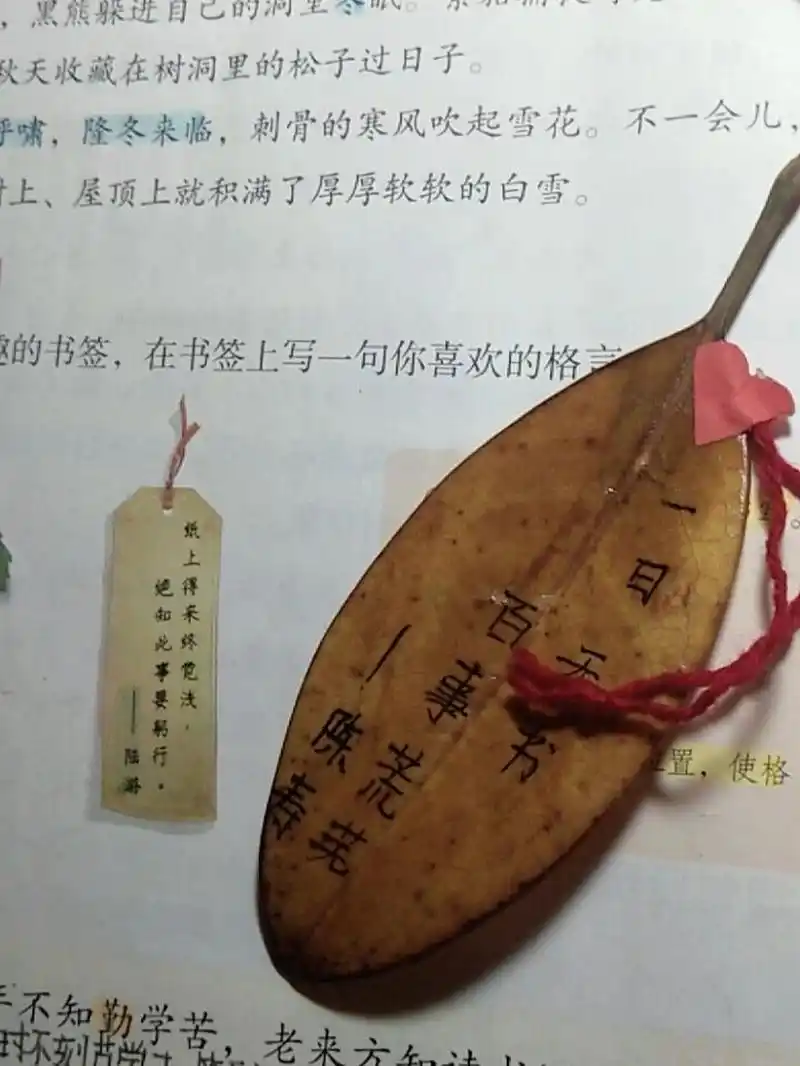 ，黑熊躲进自己的洞里冬眠。
秋天收藏在树洞里的松子过日子。
呼啸，隆冬来临，刺骨的寒风吹起雪花。不一会儿，
树上、屋顶上就积满了厚厚软软的白雪。
趣的书签，在书签上写一句你喜欢的格言
纸上得来终觉浅，
绝知此事要躬行。
——陆游
一日
书
百事荒芜
—陈寿
置，使格
不知勤学苦，老来方知读书